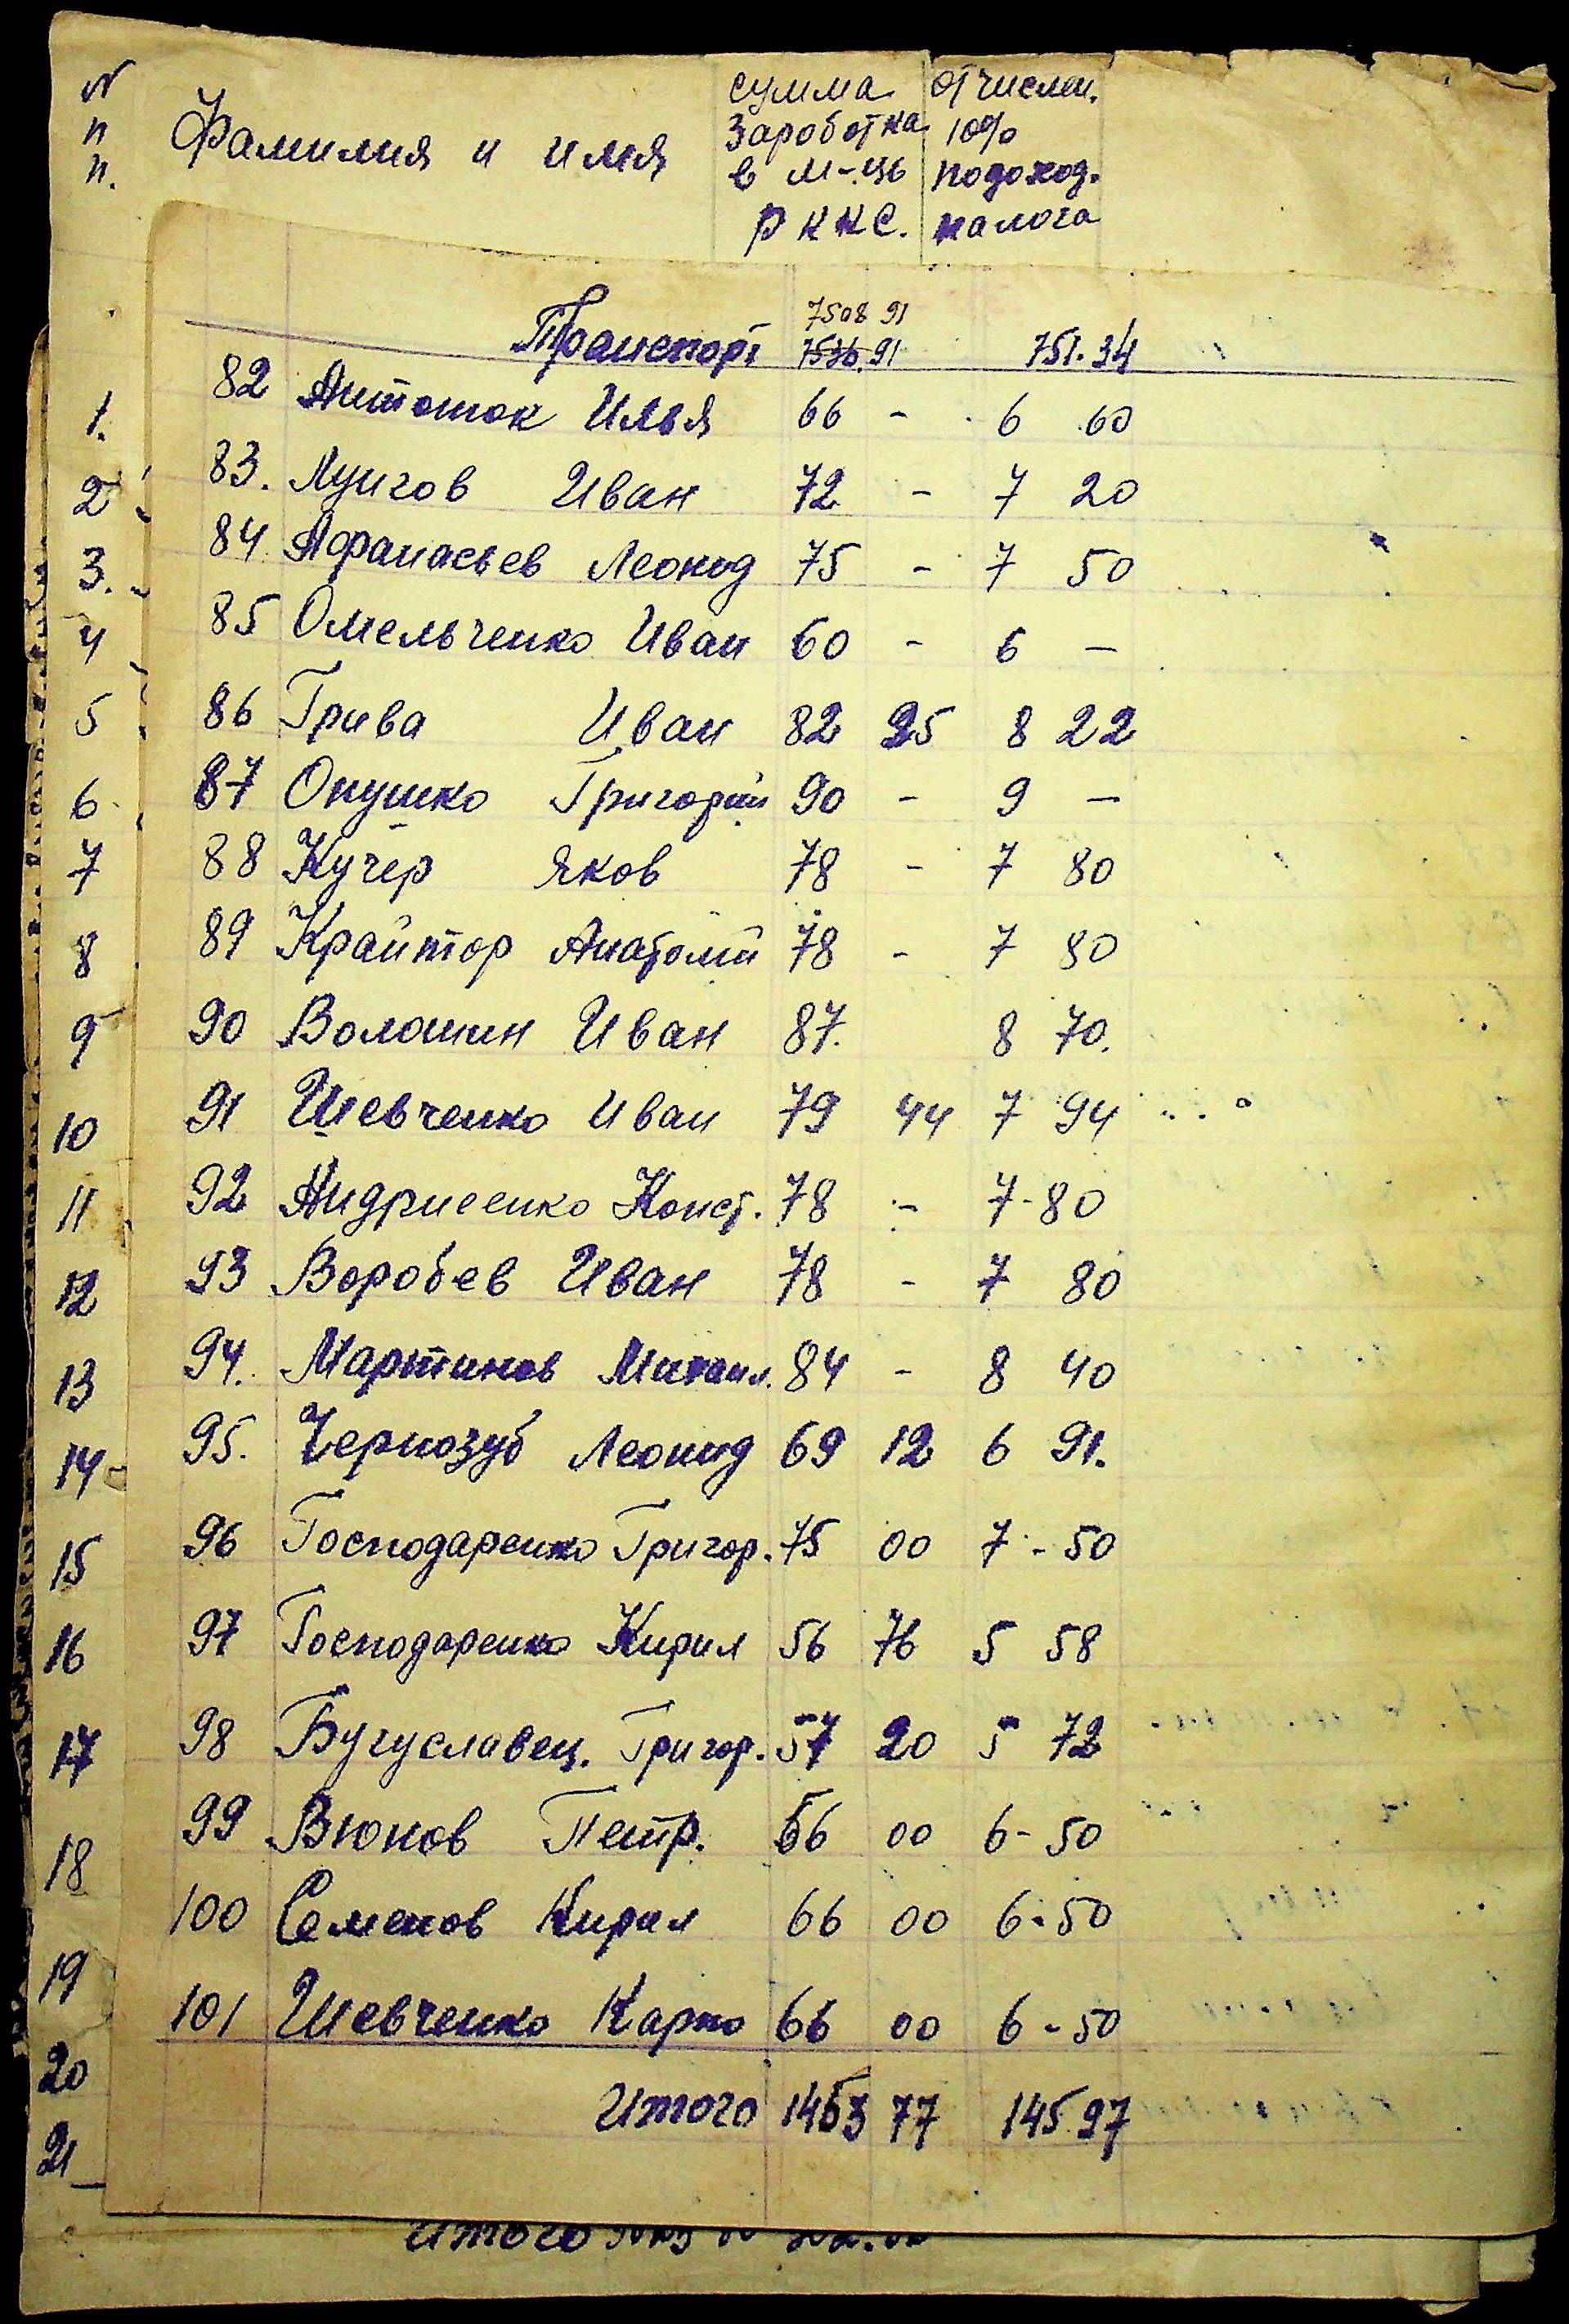 N п п. Фамилия и имя
сумма заработка в м-ць РККС.
отчислен. 10% подоход. налога
7508 91
Транспорт 7536.91 751.34
1. 82 Антонюк Илья 66 - 6 60
2 83. Луигов Иван 72 - 7 20
3. 84 Афанасьев Леонид 75 - 7 50
4 85 Омельченко Иван 60 - 6 —
5 86 Грива Иван 82 25 8 22
6 87 Онушко Григорий 90 - 9 —
7 88 Кучер Яков 78 - 7 80
8 89 Крайтор Анатолий 78 - 7 80
9 90 Волошин Иван 87. 8 70.
10 91 Шевченко Иван 79 44 7 94
11 92 Андриеенко Конст. 78 - 7-80
12 93 Воробев Иван 78 - 7 80
13 94. Мартинов Михаил. 84 - 8 40
14 95. Чернозуб Леонид 69 12 6 91.
15 96 Господаренко Григор. 75 00 7-50
16 97 Господаренко Кирил 56 76 5 58
17 98 Бугуславец. Григор. 57 20 5 72
18 99 Вюнов Петр. 66 00 6-50
100 Семенов Кирил 66 00 6-50
19 101 Шевченко Карпо 66 00 6-50
20
Итого 1463 77 145 97
21
Итого